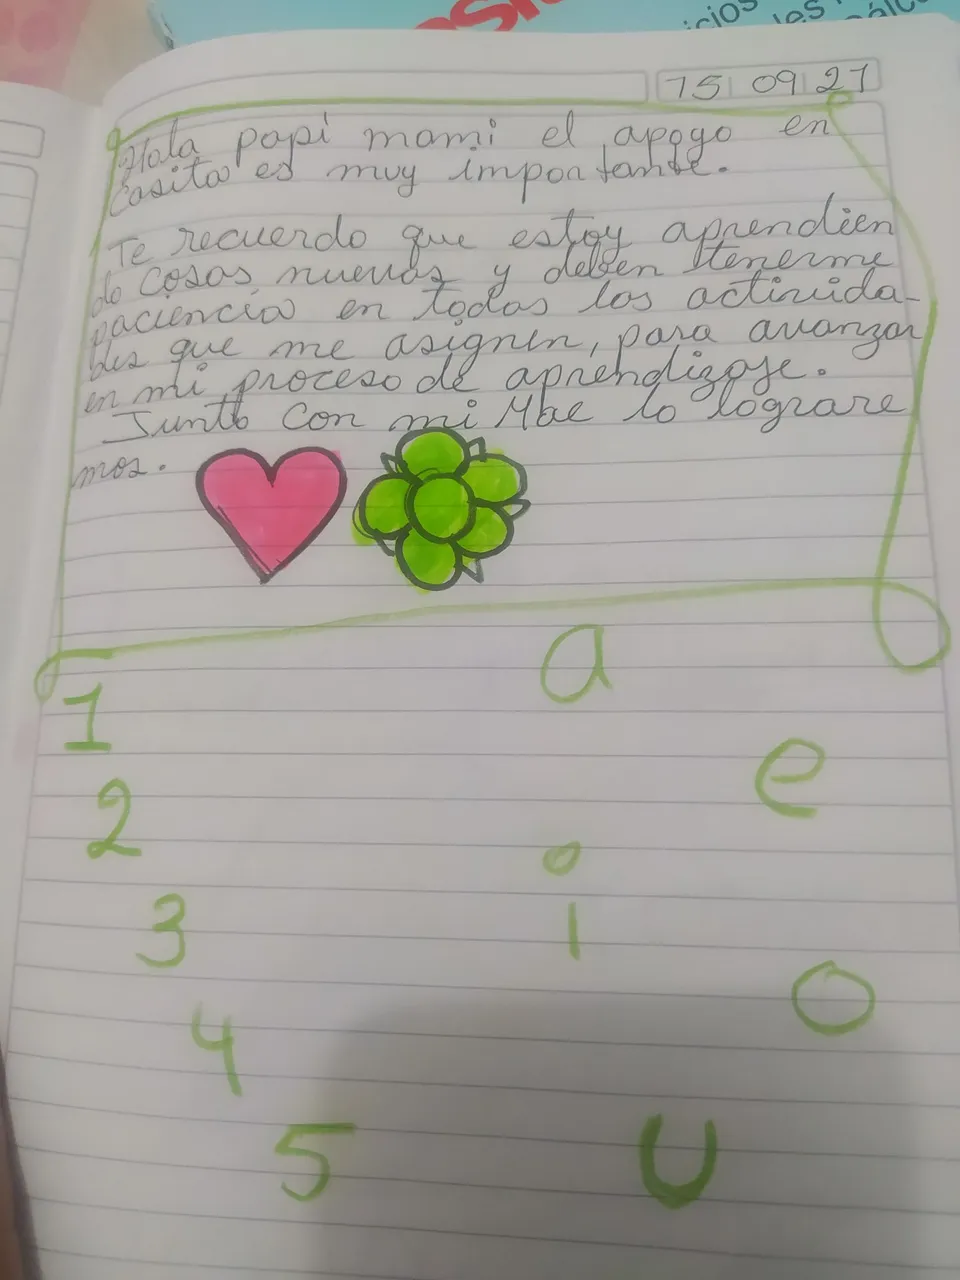 15 09 21
Hola papi mami el apoyo en
Casita es muy importante.
Te recuerdo que estoy aprendien
do cosas nuevas y deben tenerme
paciencia en todas las activida-
des que me asignen, para avanzar
en mi proceso de aprendizaje.
Junto con mi Mae lo lograre
mos.
1 a
e
2
i
3
o
4
5 U